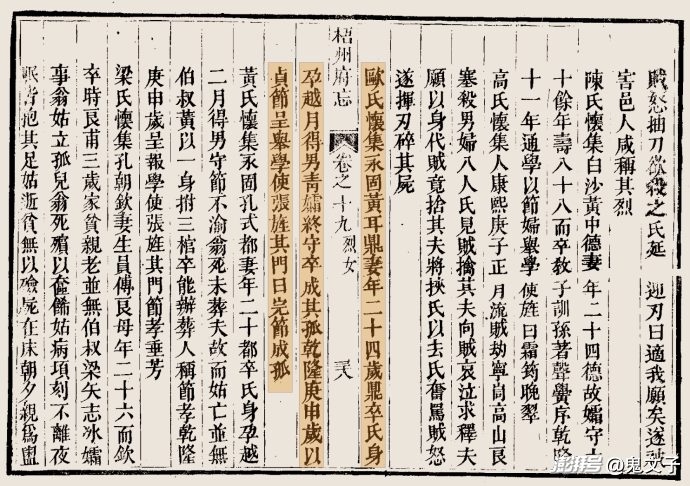 賊怒抽刀欲殺之氏延 迎刃曰適我願矣遂
害邑人咸稱其烈
陳氏懷集白沙黃中德妻 年二十四德故孀守六
十餘年壽八十八而卒教子訓孫著聲黌序乾隆
十一年通學以節孀舉學 使旌曰霜筠晚翠
高氏懷集人康熙庚子正 月流賊劫寧崗高山良
塞殺男婦八人氏見賊擒其夫向賊哀泣求釋夫
願以身代賊竟捨其夫將挾氏以去氏奮罵賊怒
遂揮刃碎其屍
歐氏懷集永固黃耳鼎妻年二十四歲鼎卒氏身
梧州府志 卷之十九烈女
孕越月得男青孀終守卒成其孤乾隆庚申歲以
貞節呈舉學使張旌其門曰完節成孤
黃氏懷集永固孔式都妻年二十都卒氏身孕越
二月得男守節不渝翁死未葬夫故而姑亡並無
伯叔黃以一身拊三棺卒能辦葬人稱節孝乾隆
庚申歲呈報學使張旌其門節孝垂芳
梁氏懷集孔朝欽妻生員傅良母年二十六而欽
卒時良甫三歲家貧親老並無伯叔梁矢志冰孀
事翁姑立孤兒翁死殯以奩餙姑病頃刻不離夜
眠皆抱其足姑逝貧無以殮屍在床朝夕親為盥
澎湃号@鬼丈子